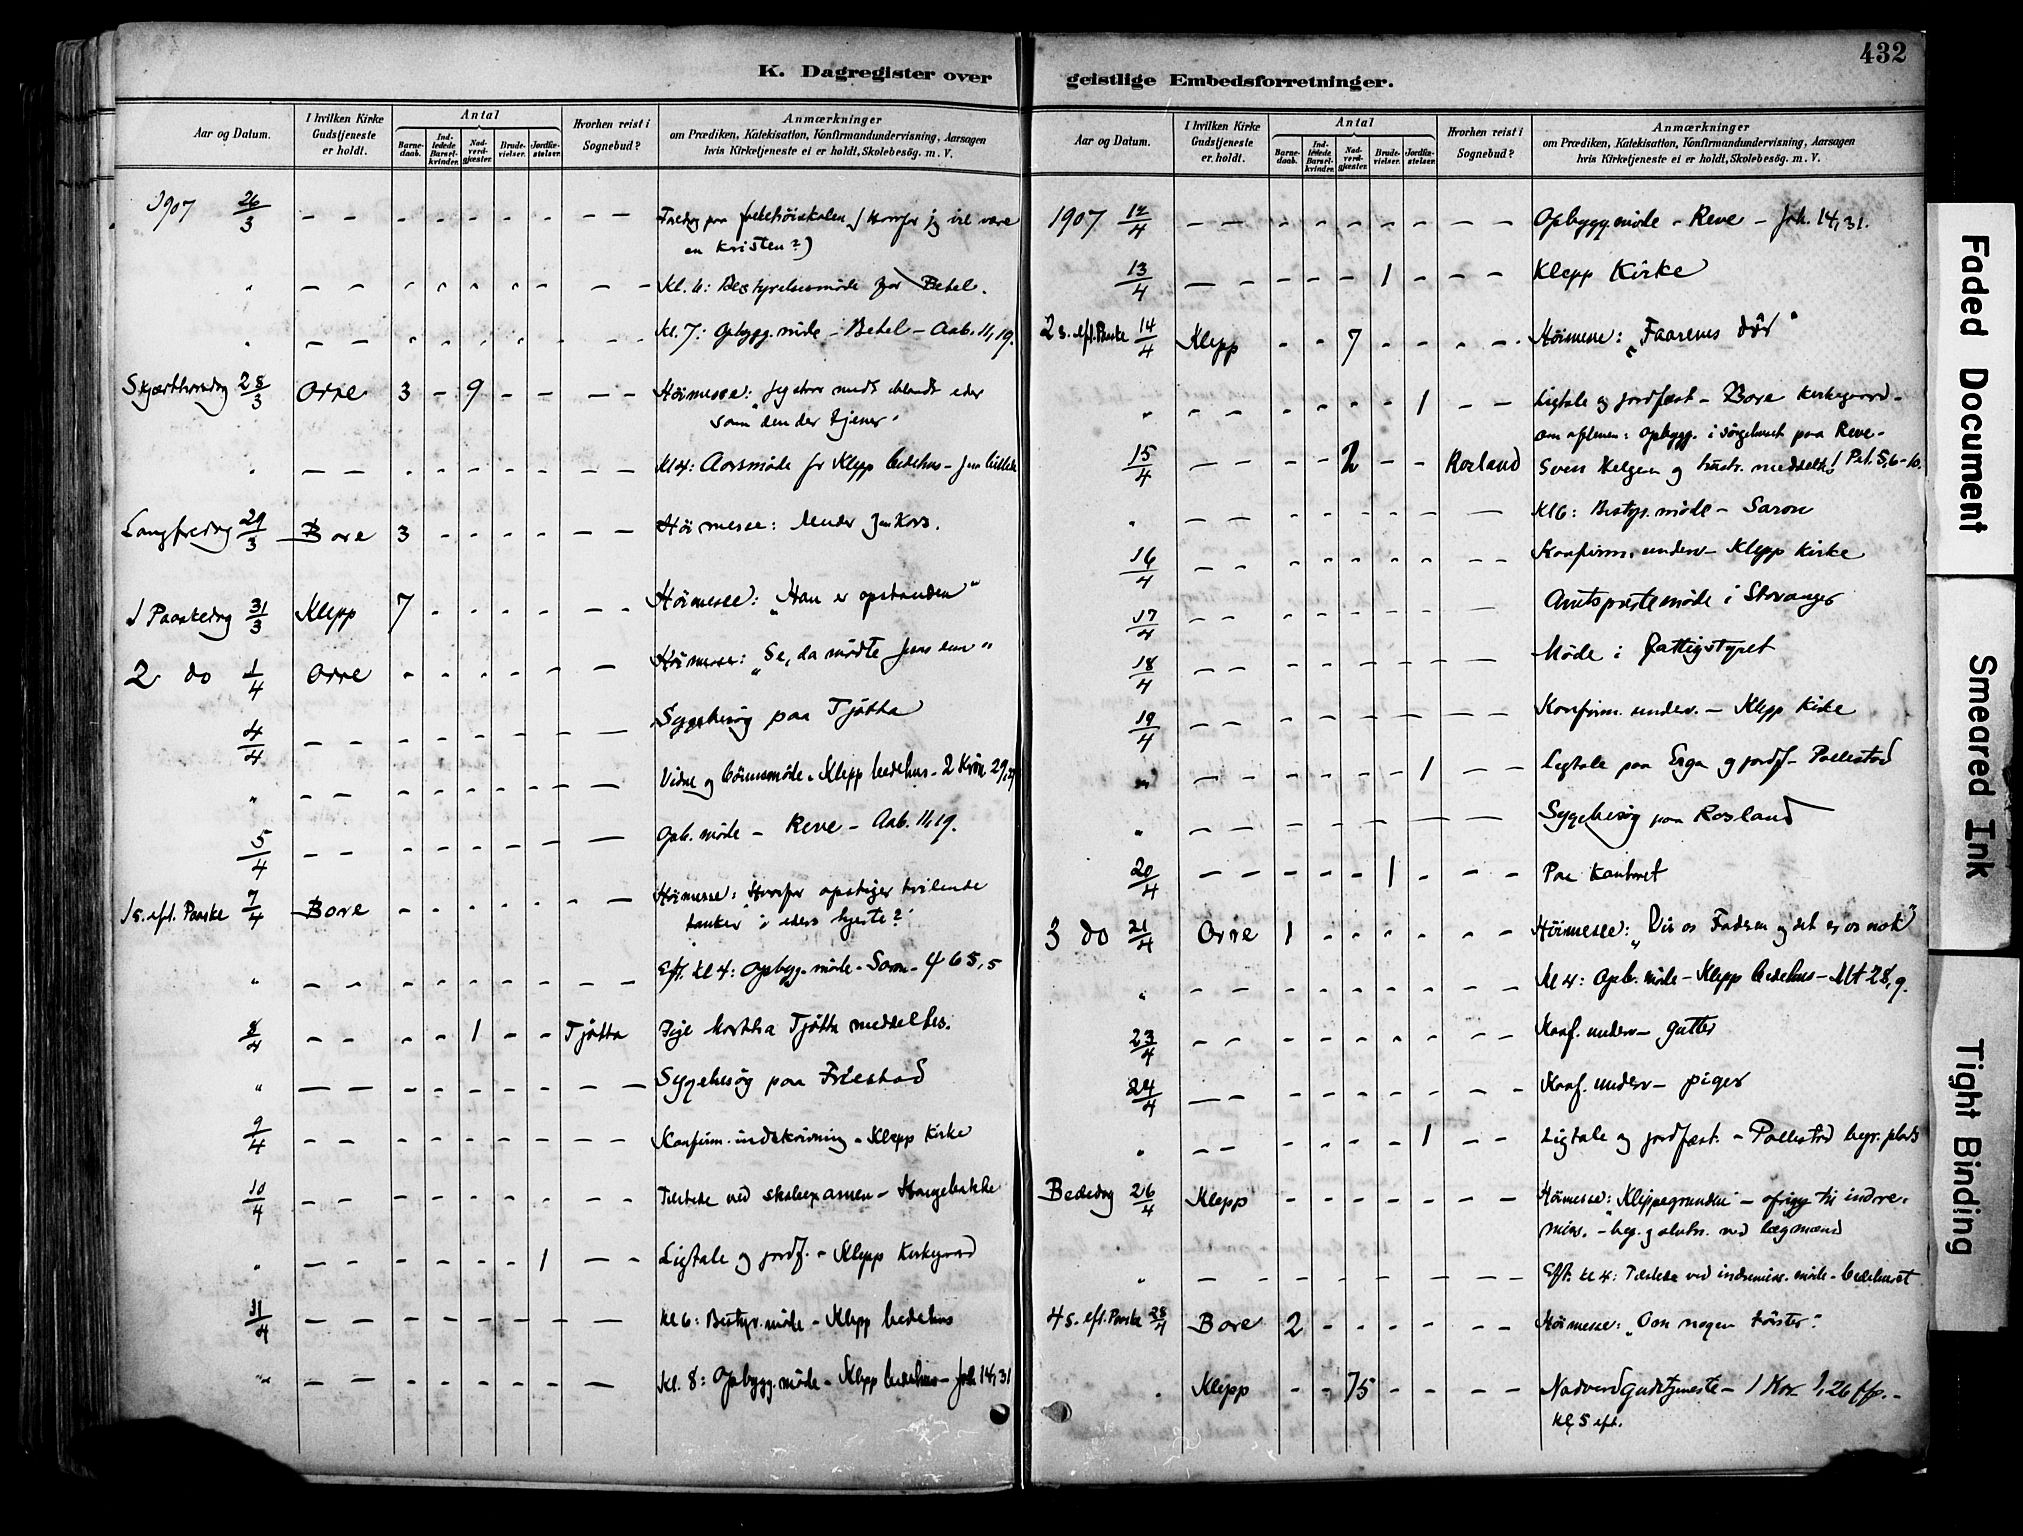 K. Dagregister over
Aar og Datum.
I hvilken Kirke Gudstjeneste er holdt.
Antal
Barne-daab.
Ind-ledede Barsel-kvinder.
Nad-verd-gjæster.
Brude-vielser.
Jordfæ-stelser.
Hvorhen reist i Sognebud?
Anmærkninger
om Prædiken, Katekisation, Konfirmandundervisning, Aarsagen
hvis Kirketjeneste ei er holdt, Skolebesøg. m. V.
1907 26/3 Foredrag paa folkehøiskolen (Hvorfor jeg vil være
en kristen?)
" Kl. 6: Bestyrelsesmøde for Betel.
" Kl. 7: Opbygg. møde - Betel - Aab. 11,19.
Skjærthorsdag 28/3 Orre 3 - 9 Høimesse: "Jeg er midt iblandt eder
som den der tjener"
" Kl 4: Aarsmøde for Klepp bedehus
Langfredag 29/3 Bore 3 Høimesse: Under Jesu Kors.
1 Paaskedag 31/3 Klepp 7 Høimesse: "Han er opstanden"
2 do 1/4 Orre Høimesse: "Se, da mødte Jesus dem"
4/4 Sygebesøg paa Tjøtta
" Vidne og bønnemøde - Klepp bedehus - 2 Krøn. 29,
5/4 Opb. møde - Reve - Aab. 11,19.
1 s. eft. Paaske 7/4 Bore Høimesse: "Hvorfor opstiger tvilende
tanker i eders hjerte?"
" Eft. kl 4: Opbygg. møde - Saron - ψ 65,5
8/4 1 Tjøtta Pige Martha Tjøtta meddeltes.
" Sygebesøg paa Friestad
9/4 Konfirm. indskrivning - Klepp Kirke
10/4 Tilstede ved skoleexamen - Haugebakke
" 1 Ligtale og jordf. - Klepp Kirkegaard
11/4 Kl 6: Bestyr. møde - Klepp bedehus
" Kl. 8: Opbygg. møde - Klepp bedehus - Joh. 14,31
432
geistlige Embedsforretninger.
Aar og Datum.
I hvilken Kirke Gudstjeneste er holdt.
Antal
Barne-daab.
Ind-ledede Barsel-kvinder.
Nad-verd-gjæster.
Brude-vielser.
Jordfæ-stelser.
Hvorhen reist i Sognebud?
Anmærkninger
om Prædiken, Katekisation, Konfirmandundervisning, Aarsagen
hvis Kirketjeneste ei er holdt, Skolebesøg. m. V.
1907 12/4 Opbygg. møde - Reve - Joh. 14,31.
13/4 1 Klepp Kirke
2 s. eft. Paaske 14/4 Klepp 7 Høimesse: "Faarenes dør"
" 1 Ligtale og jordfæst - Bore Kirkegaard -
om aftenen: Opbygg. i sørgehuset paa Reve -
15/4 2 Rosland Sven Helgesen og hustr. meddeltes 1 Pet. 5,6-10.
" Kl 6: Bestyr. møde - Saron
16/4 Konfirm. underv - Klepp Kirke
17/4 Amtsprestemøde i Stavanger
18/4 Møde i fattigstyret
19/4 Konfirm. underv. - Klepp Kirke
" 1 Ligtale paa Erga og jordf - Pollestad
" Sygebesøg paa Rosland
20/4 1 Paa Kontoret
3 do 21/4 Orre 1 Høimesse: "Vis os Faderen og det er os nok"
" Kl 4: Opb. møde - Klepp bedehus - Mt 28,9.
23/4 Konf. underv - gutter
24/4 Konf. underv - piger
" 1 Ligtale og jordfæst. - Pollestad begr. plads
Bededag 26/4 Klepp Høimesse: "Klippegrunden" - ofring til indre-
miss. - beg. og slutn. ved lægmænd
" Eft. kl 4: Tilstede ved indremiss. møde - bedehuset
4 s. eft. Paaske 28/4 Bore 2 Høimesse: "Om nogen tørster"
" Klepp 75 Nadverdgudstjeneste - 1 Kor 1,26 ff. -
Kl 5 eft.
Faded Document
Smeared Ink
Tight Binding